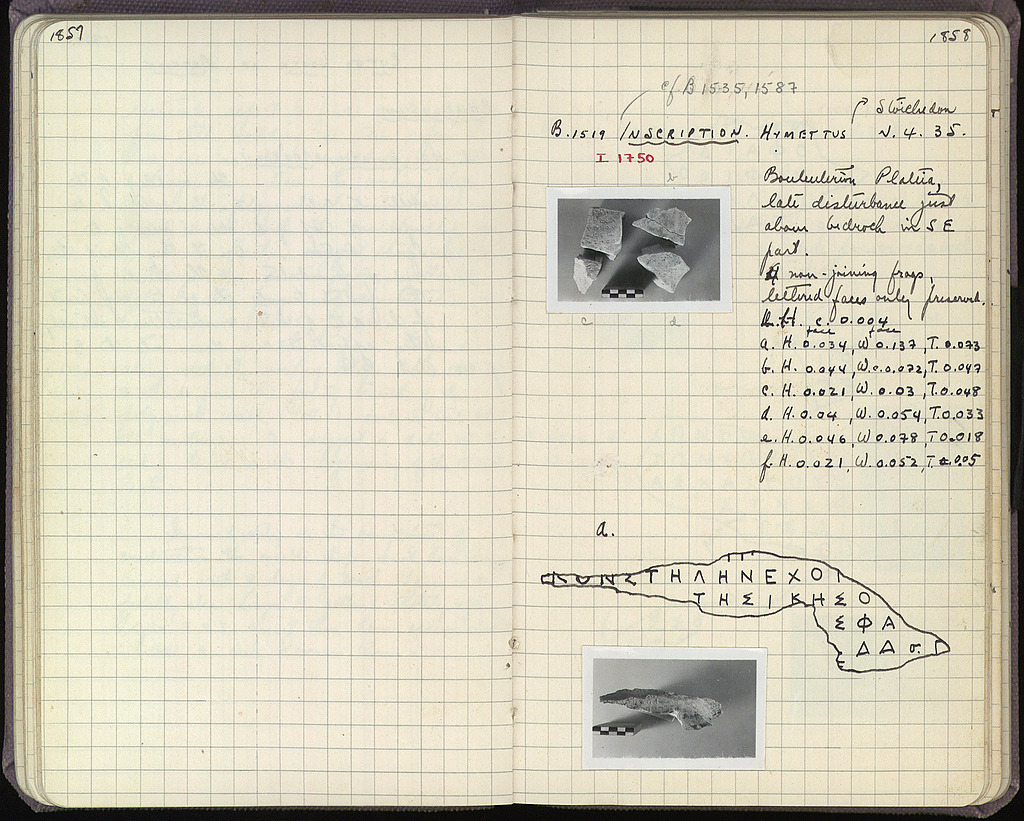 1857
1858
cf B 1535, 1587
Stoichedon
B.1519 INSCRIPTION. HYMETTUS N. 4. 35.
I 1750
b
Bouleuterion Plateia,
late disturbance just
above bedrock in SE
part.
non-joining frags,
lettered faces only preserved.
L. ht. c. 0.004
face face
a. H. 0.034, W 0.137, T. 0.073
b. H. 0.044, W. c. 0.072, T. 0.047
c. H. 0.021, W. 0.03, T. 0.048
d. H. 0.04, W. 0.054, T. 0.033
e. H. 0.046, W 0.078, T 0.018
f. H. 0.021, W. 0.052, T. 0.05
c d
a.
ΟΝΣΤΗΛΗΝΕΧΟΙ
ΤΗΣΙΚΗΣΟ
ΣΦΑ
ΔΑσ.Γ